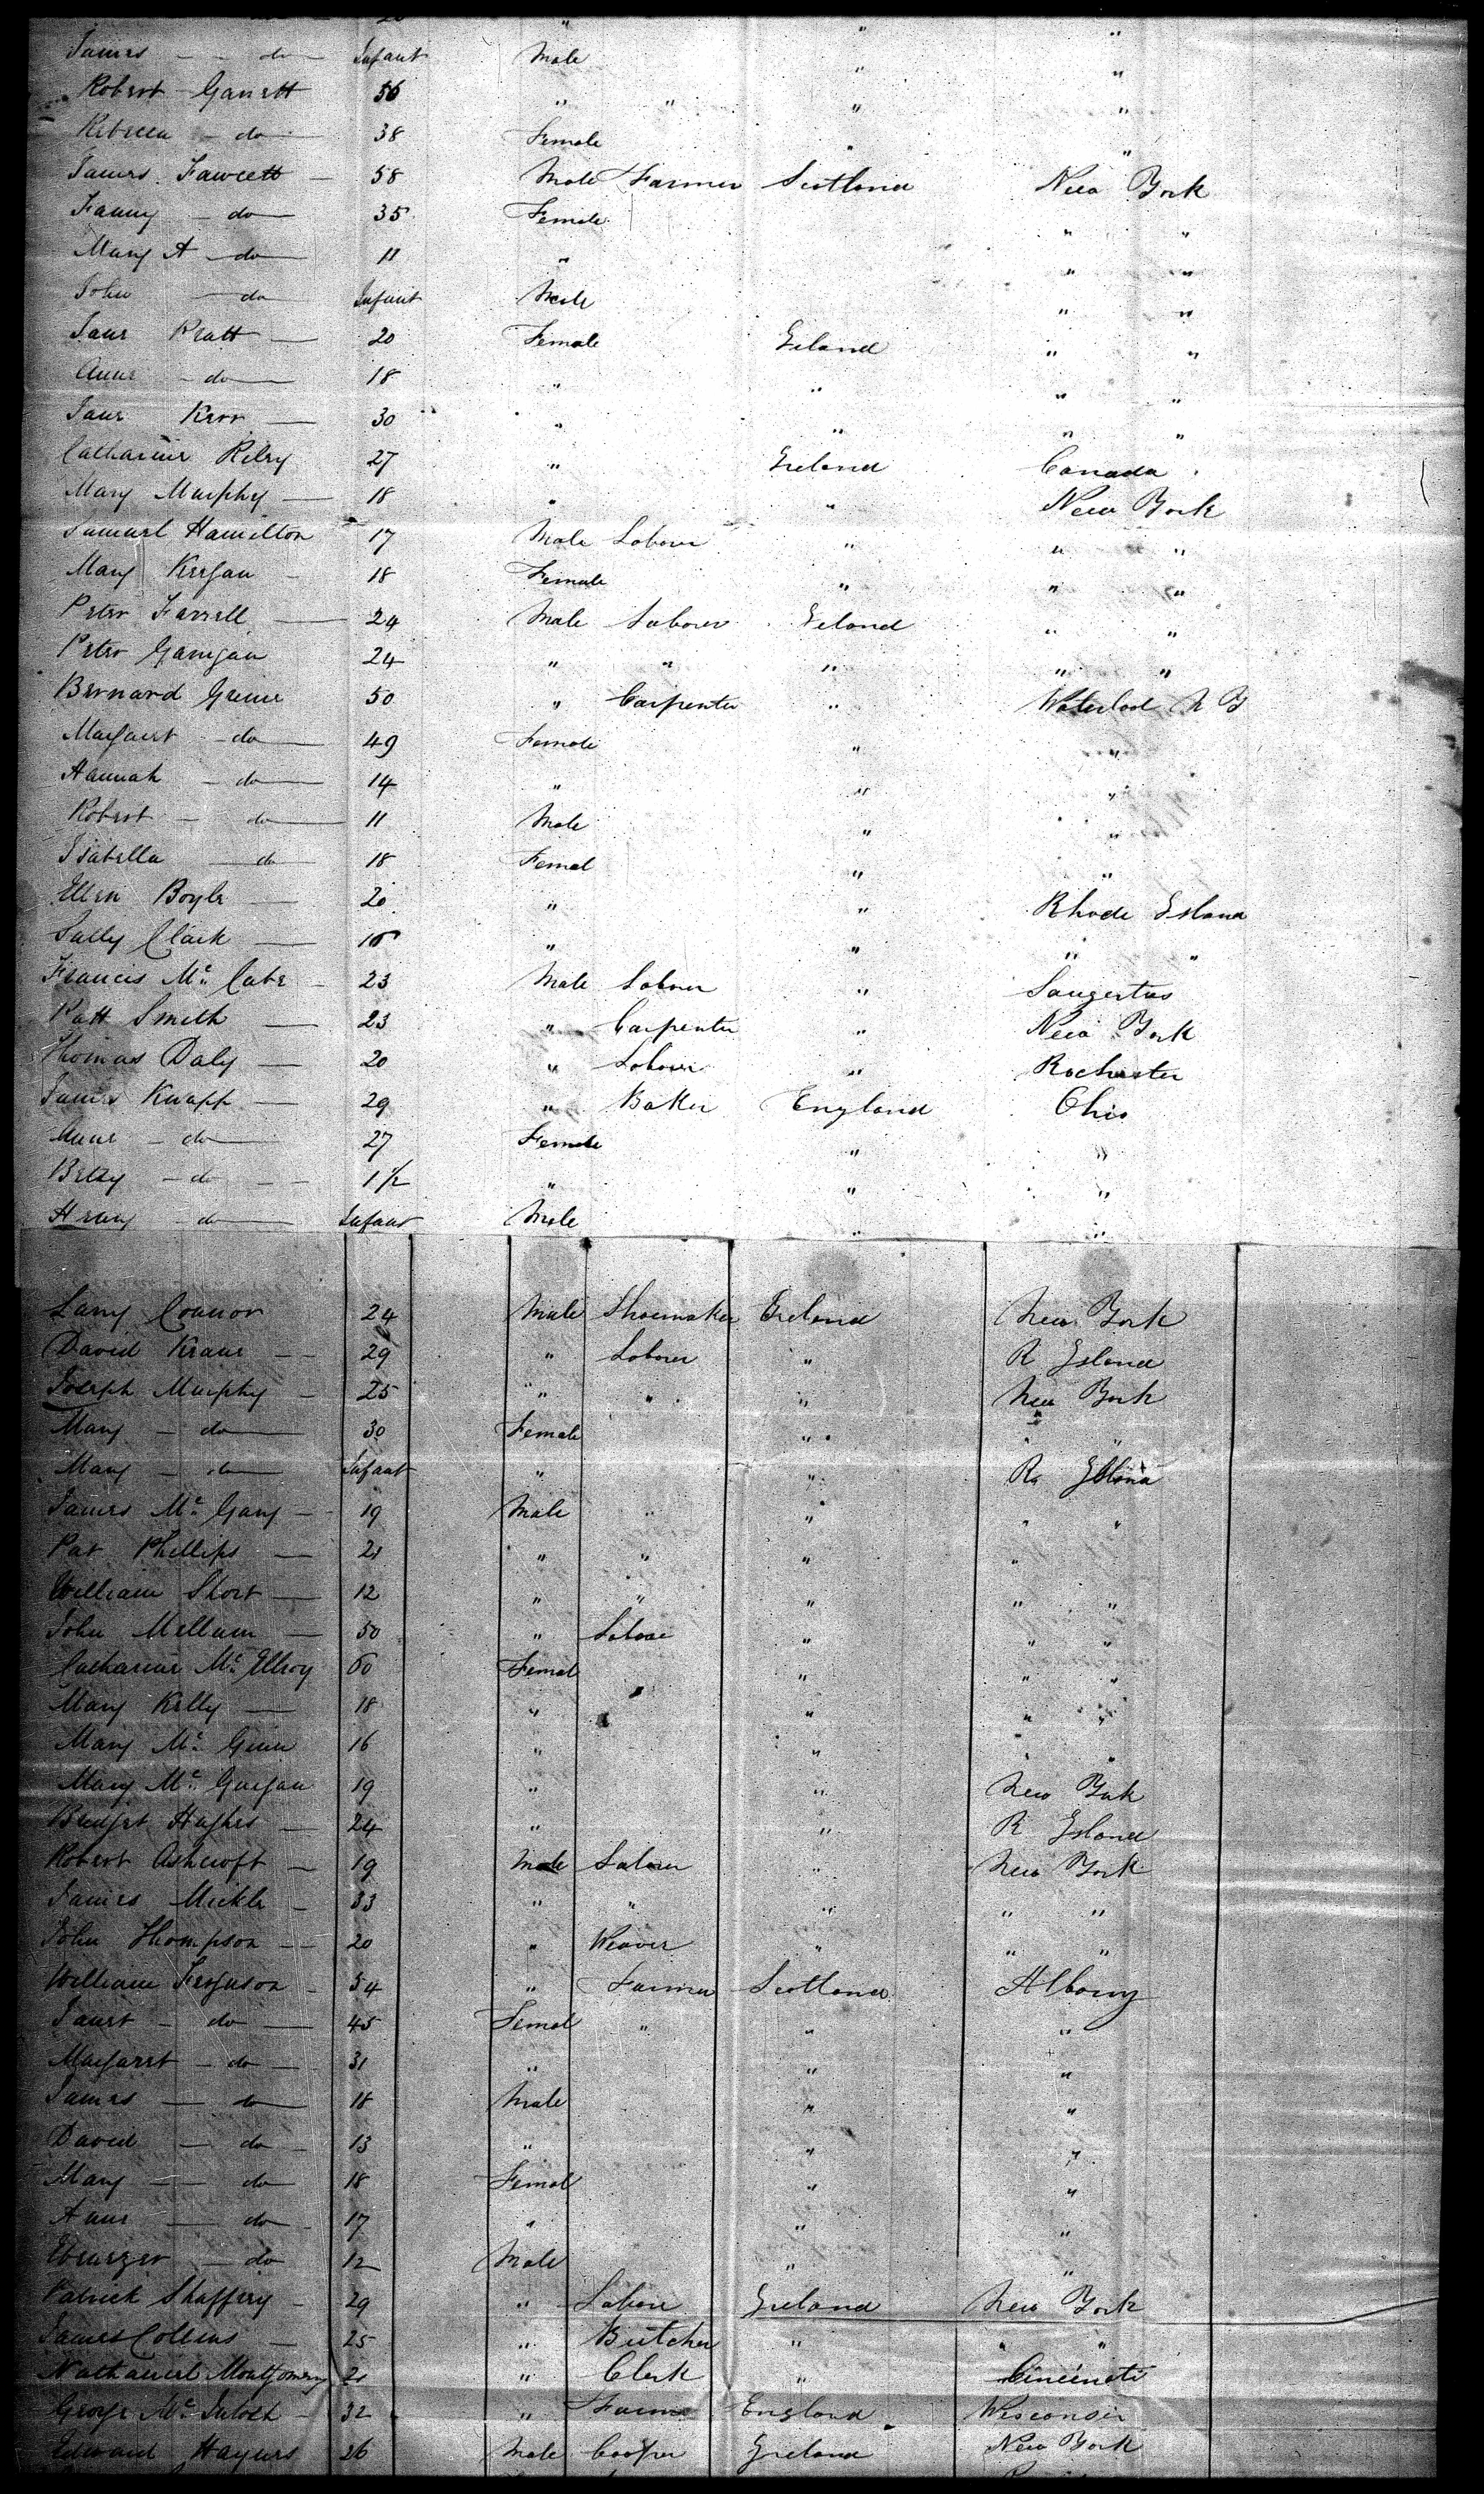 James — do — Infant Male " "
Robert Garrett 56 " " " "
Rebecca — do — 38 Female " "
James Fawcett — 58 Male Farmer Scotland New York
Fanny — do — 35 Female " "
Mary A — do — 11 " " "
John — do — Infant Male " "
Jane Pratt — 20 Female Ireland " "
Anne — do — 18 " " " "
Jane Kerr — 30 " " " "
Catharine Riley 27 " Ireland Canada
Mary Murphy — 18 " " New York
Samuel Hamilton 17 Male Laborer " " "
Mary Keegan — 18 Female " " "
Peter Farrell — 24 Male Laborer Ireland " "
Peter Garrigan 24 " " " " "
Bernard Greene 50 " Carpenter " Waterlood N Y
Margaret — do — 49 Female " "
Hannah — do — 14 " " "
Robert — do — 11 Male " "
Isabella — do — 18 Femal " "
Ellen Boyle — 20 " " Rhode Island
Sally Clark — " " " "
Francis Mc Cabe — 23 Male Laborer " Saugertus
Patt Smith — 23 " Carpenter " New York
Thomas Daly — 20 " Laborer " Rochester
James Knapp — 29 " Baker England Ohio
Anne — do — 27 Female " "
Betsy — do — 1 1/2 " " "
Henry — do — Infant Male " "
Larry Connor 24 Male Shoemaker Ireland New York
David Krane — 29 " Laborer " R Island
Joseph Murphy — 25 " " " New York
Mary — do — 30 Female " " "
Mary — do — Infant " " R Island
James Mc Gary — 19 Male " " " "
Pat Phillips — 21 " " " "
William Short — 12 " " " " "
John Mellum — 50 " Laborer " " "
Catharine Mc Ellroy 60 Femal " " "
Mary Kelly — 18 " " " "
Mary Mc Ginn 16 " " " "
Mary Mc Guigan 19 " " New York
Bridget Hughes — 24 " " R Island
Robert Ashcroft — 19 Male Laborer " New York
James Mickle — 33 " " " " "
John Thompson — 20 " Weaver " " "
William Ferguson — 54 " Farmer Scotland Albany
Janet — do — 45 Femal " " "
Margaret — do — 31 " " "
James — do — 18 Male " "
David — do — 13 " " "
Mary — do — 18 Femal " "
Anne — do — 17 " " "
Ebenezer — do 12 Male " "
Patrick Shaffery — 29 " Labore Ireland New York
James Collins — 25 " Butcher " " "
Nathaniel Montgomery 21 " Clerk " Cincineti
George Mc Intosh — 32 " Farmer England Wisconsin
Edward Haynes 26 Male Cooper Ireland New York